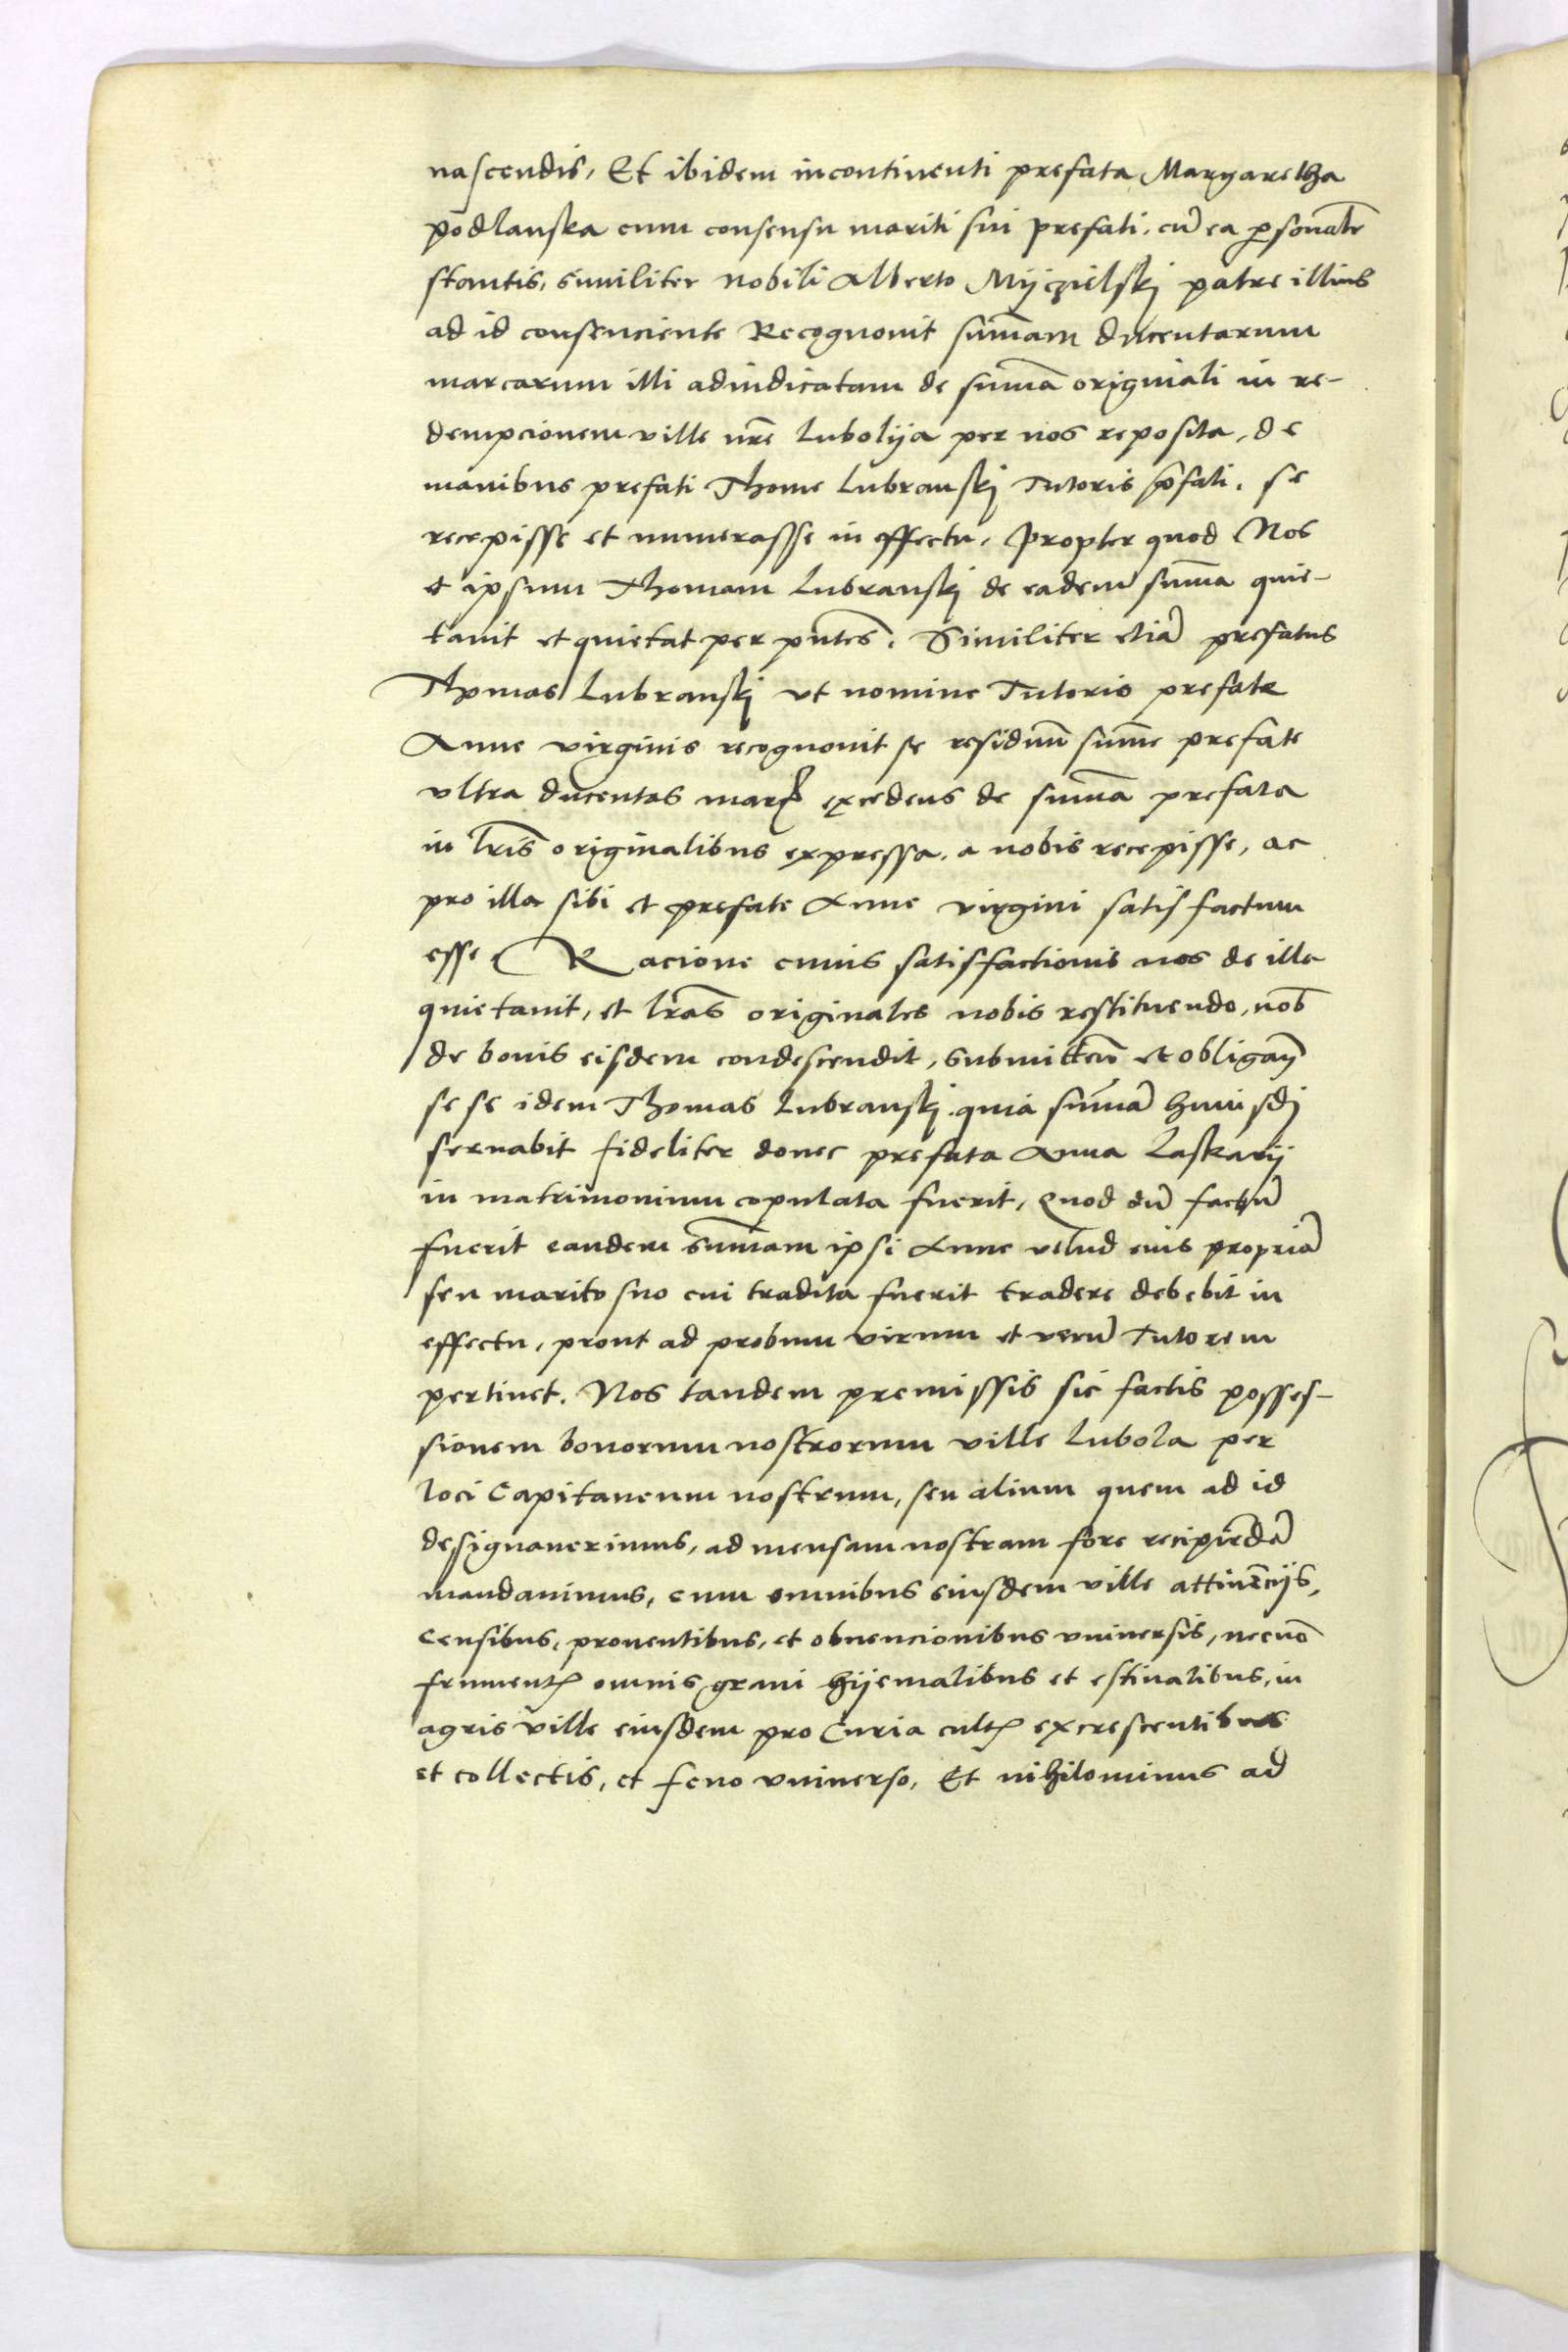 nascendis, Et ibidem incontinenti prefata Margaretha
podlanska cum consensu mariti sui prefati, cũ ea ꝑsonalr̃
stantis, similiter nobili Alberto Myczielskj patre illius
ad id consenciente Recognovit sum̃am ducentarum
marcarum illi adiudicatam de sum̃a originali in re-
dempcionem ville nr̃e Lubolya per nos reposita, de
manibus prefati Thome Lubranskj Tutoris p̃fati, se
recepisse et numerasse in effectu, propter quod Nos
et ipsum Thomam Lubranskj de eadem sum̃a quie-
tauit et quietat per pñtes. Similiter etiã prefatus
Thomas Lubranskj vt nomine Tutorio prefate
Anne virginis recognouit se residuũ sum̃e prefate
vltra ducentas marc̃ excedens de sum̃a prefata
in lr̃is originalibus expressa, a nobis recepisse, ac
pro illa sibi et prefate Anne virgini satisfactum
esse, Racione cuius satisfactionis nos de illa
quietauit, et lr̃as originales nobis restituendo, nob̃
de bonis eisdem condescendit, submitteñ et obligañ
se se idem Thomas Lubranskj quia sum̃ã huiusdj
seruabit fideliter donec prefata Anna Laskarij
in matrimonium copulata fuerit, Quod cũ factũ
fuerit eandem sum̃am ipsi Anne velud eius propriã
seu marito suo cui tradita fuerit tradere debebit in
effectu, prout ad probum virum et verũ Tutorem
pertinet. Nos tandem premissis sic factis posses-
sionem bonorum nostrorum ville Lubola per
loci Capitaneum nostrum, seu alium quem ad id
designauerimus, ad mensam nostram fore recipiendã
mandauimus, cum omnibus eiusdem ville attinẽcijs,
Censibus, prouentibus, et obuencionibus vniuersis, necnõ
frumentꝭ omnis grani hyemalibus et estiualibus, in
agris ville eiusdem pro Curia cultꝭ excrescentibus
et collectis, et feno vniuerso, Et nihilominus ad